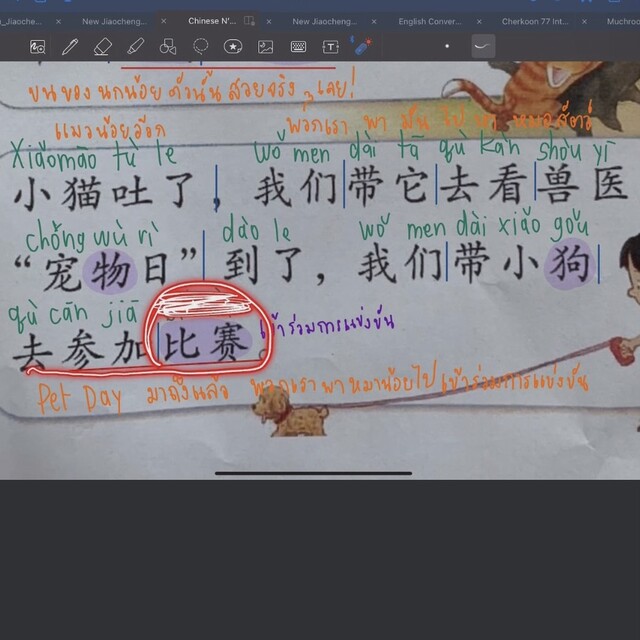 _Jiaoche... New Jiaocheng... Chinese N'... New Jiaocheng... English Conver... Cherkoon 77 Int... Muchroo
ขนของ นกน้อย ตัวนั้น สวยจริง ๆ เลย!
แมวน้อยอ๊อก พวกเรา พา มัน ไป หา หมอสัตว์
Xiǎomāo tù le wǒ men dài tā qù kàn shòu yī
小猫吐了，我们带它去看兽医
chǒng wù rì dào le wǒ men dài xiǎo gǒu
“宠物日”到了，我们带小狗
qù cān jiā
去参加比赛 เข้าร่วมการแข่งขัน
Pet Day มาถึงแล้ว พวกเราพาหมาน้อยไปเข้าร่วมการแข่งขัน